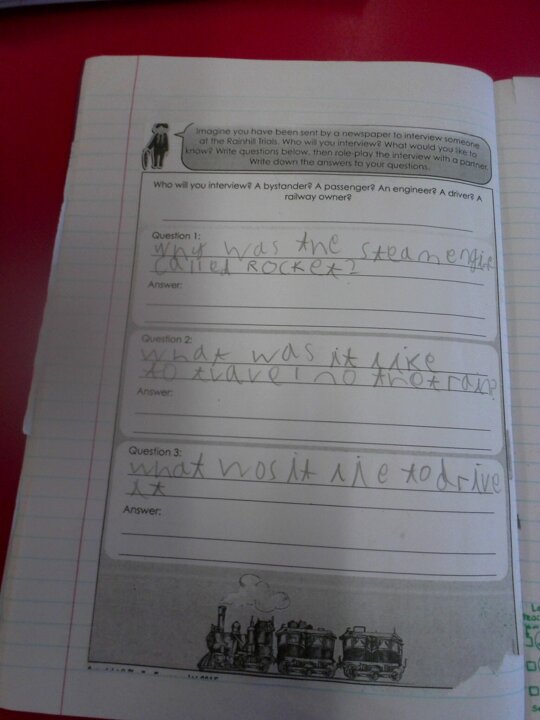 Imagine you have been sent by a newspaper to interview someone
at the Rainhill Trials. Who will you interview? What would you like to
know? Write questions below, then role-play the interview with a partner.
Write down the answers to your questions.
Who will you interview? A bystander? A passenger? An engineer? A driver? A
railway owner?
Question 1:
why was the steam engie
called ROCKet?
Answer:
Question 2:
what was it like
to travel no the traine
Answer:
Question 3:
what was it lie to drive
it
Answer: